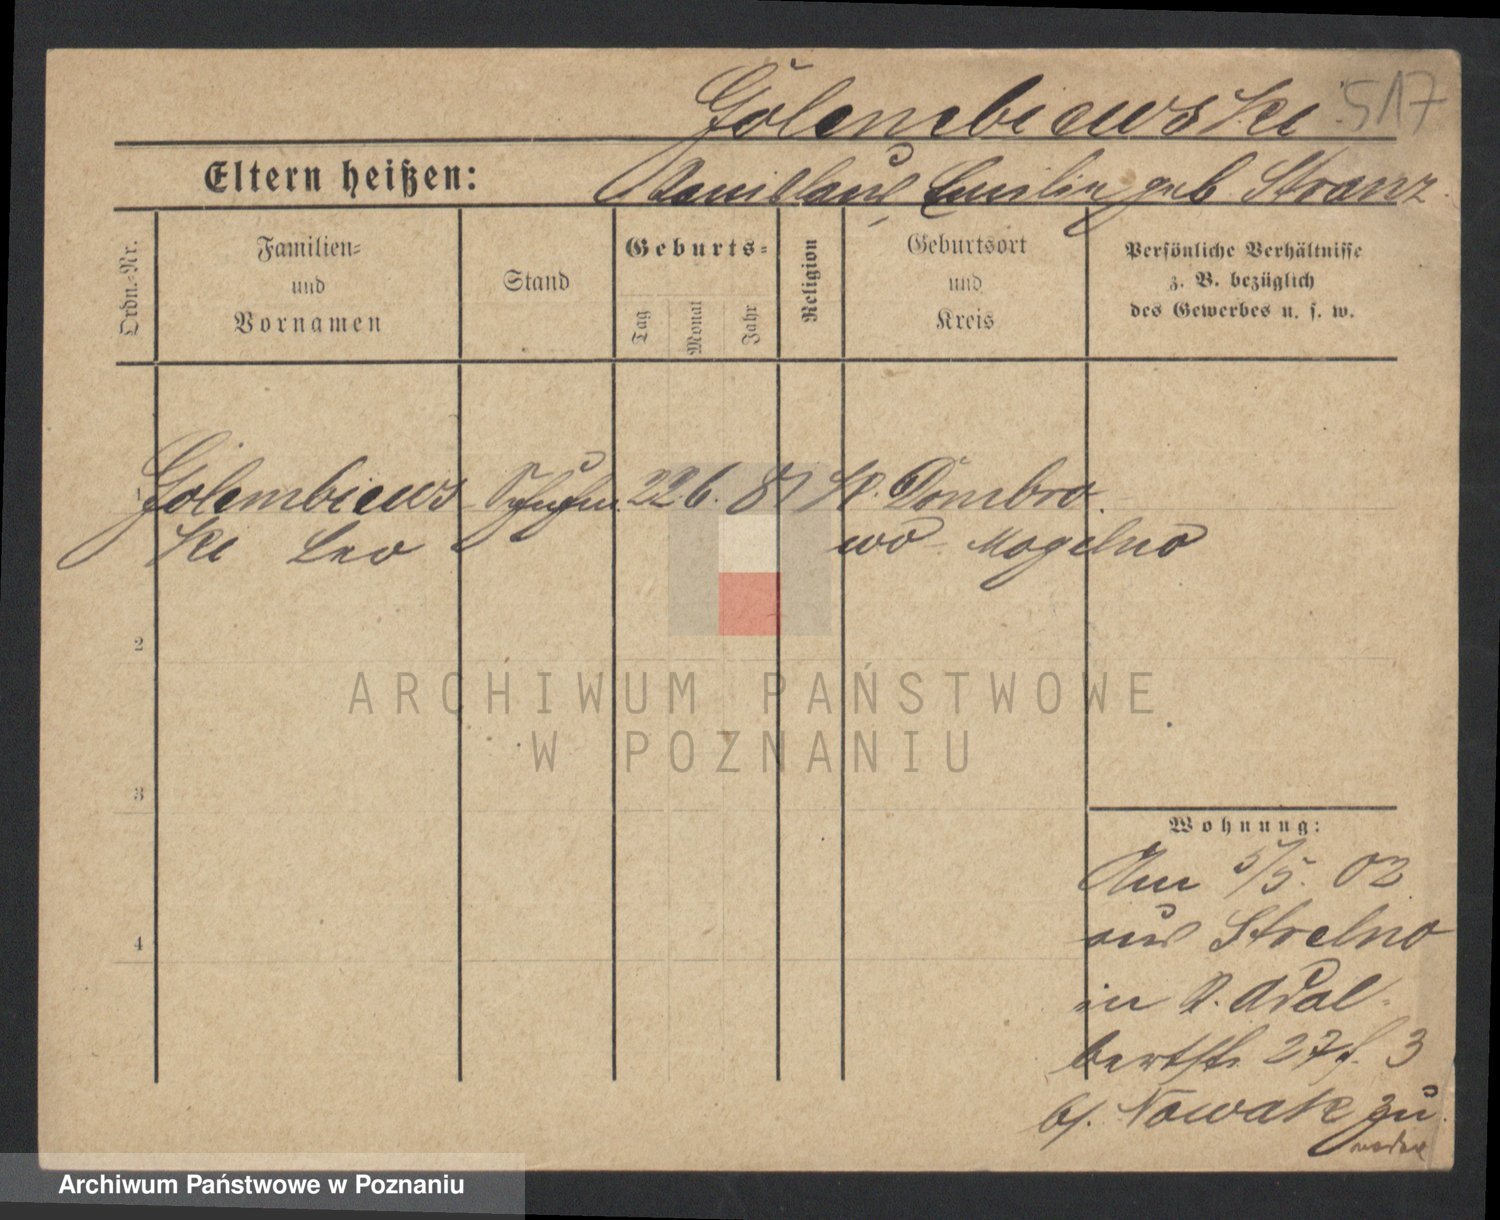 Golembiewski 517
Eltern heißen: Stanislaus, Emilie geb Stranz
Ordn.-Nr.
Familien-
und
Vornamen
Stand
Geburts-
Tag
Monat
Jahr
Religion
Geburtsort
und
Kreis
Persönliche Verhältnisse
z. B. bezüglich
des Gewerbes u. s. w.
1 Golembiews 22 6. 81 K. Dombro
ki Leo wo Mogelno
2
3
4
ARCHIWUM PAŃSTWOWE
W POZNANIU
Wohnung:
Am 5/5. 02
aus Strelno
in St. Adal
bertstr. 27 3
bj. Nowak zu
Archiwum Państwowe w Poznaniu